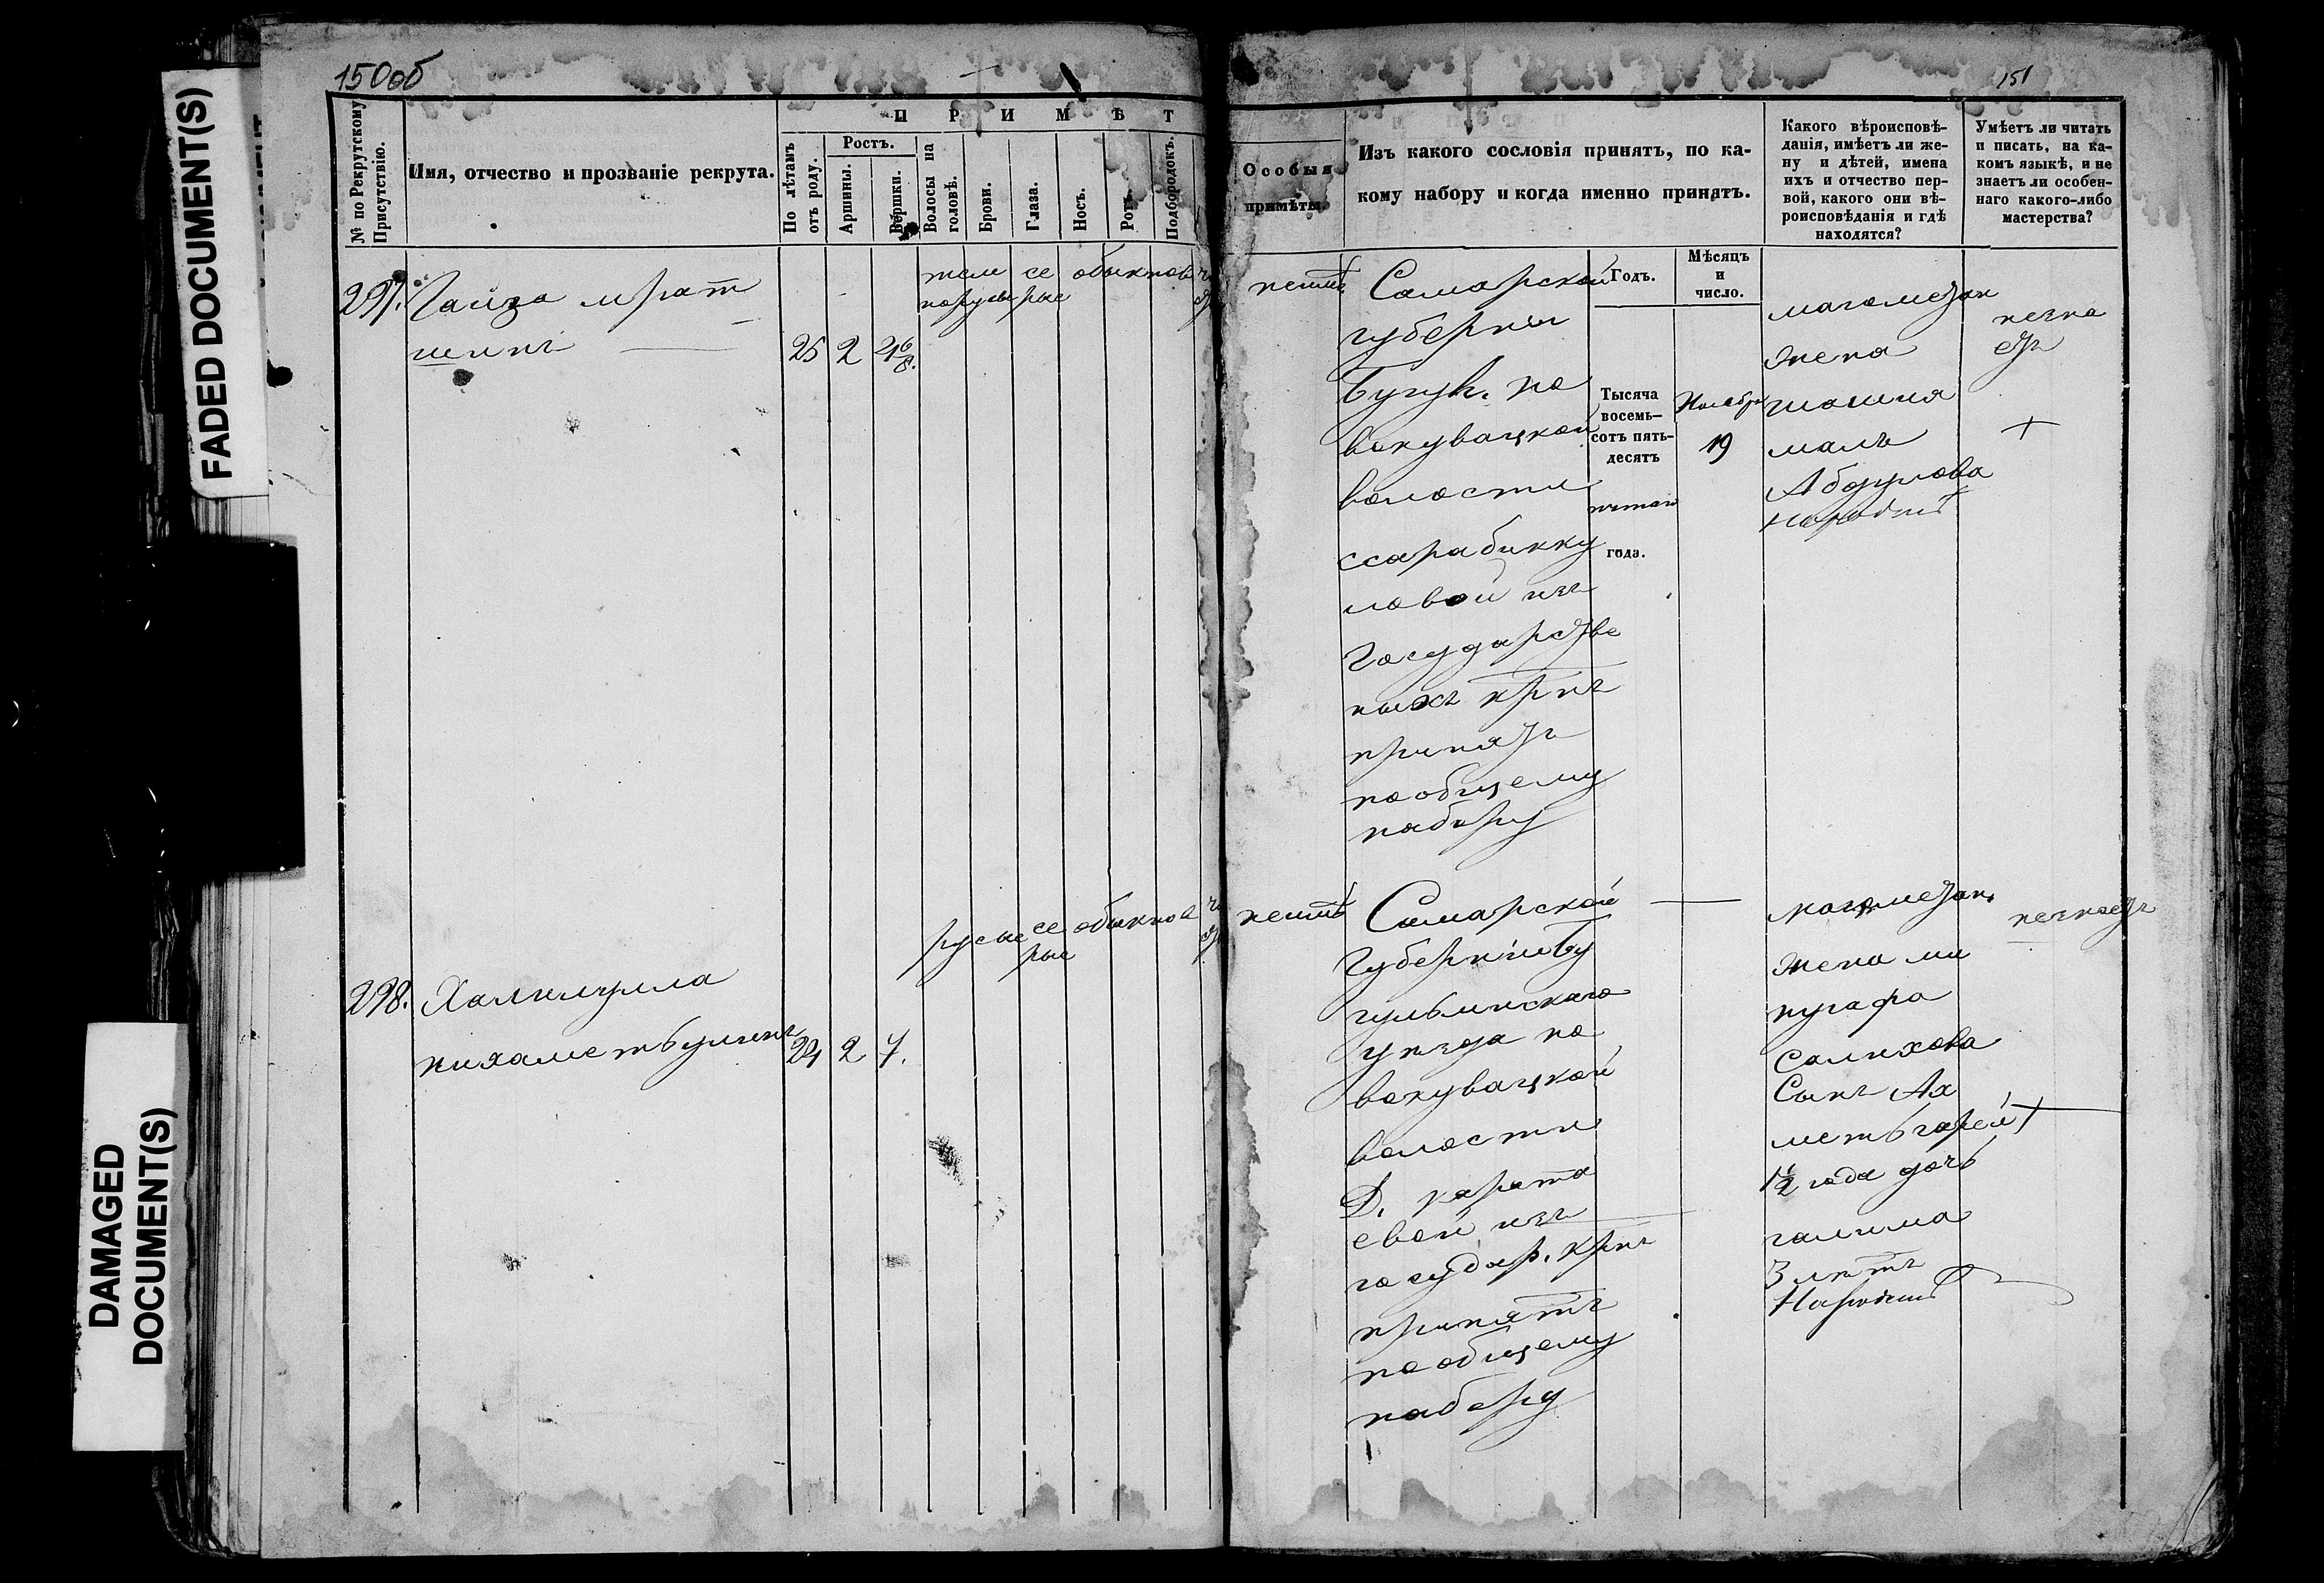 150об
151
FADED DOCUMENT(S)
DAMAGED
DOCUMENT(S)
№ по Рекрутскому
Присутствію.
Имя, отчество и прозваніе рекрута.
П Р И М Ѣ Т
По лѣтамъ
отъ роду.
Ростъ.
Аршины.
Вершки.
Волосы на
головѣ.
Брови.
Глаза.
Носъ.
Ротъ.
Подбородокъ.
Особыя
примѣты.
Изъ какого сословія принятъ, по ка-
кому набору и когда именно принятъ.
Какого вѣроисповѣ-
данія, имѣетъ ли же-
ну и дѣтей, имена
ихъ и отчество пер-
вой, какого они вѣ-
роисповѣданія и гдѣ
находятся?
Умѣетъ ли читать
и писать, на ка-
комъ языкѣ, и не
знаетъ ли особен-
наго какого-либо
мастерства?
297. Гайза мрат
шинъ 25 2 4 6/8.
темно русые
се рые
обыкнов
нетъ
Самарской
губерніи
Бугул. но
вокувацкой
волости
ссарабикку
ловой изъ
государстве
ныхъ крпъ
принятъ
по общему
набору
Годъ.
Мѣсяцъ
и
число.
Тысяча
восемь-
сотъ пять-
десятъ
пятаго
года.
Ноября
19
магометан
жена
шамся
малъ
Абдулова
незна
етъ
+
298. Халиулла
ниязаметьулинъ 24 2 7.
русые
се рые
обыкнов
нетъ
Самарской
губерніи Бу
гульминскаго
уезда но
вокувацкой
волости
Д. карата
евой изъ
государ. крпъ
принятъ
по общему
набору
магометан.
жена ми
нугафа
Салихова
Сынъ Ах
метьгарей +
1½ года дочь
галима
3 лѣтъ
незнаетъ